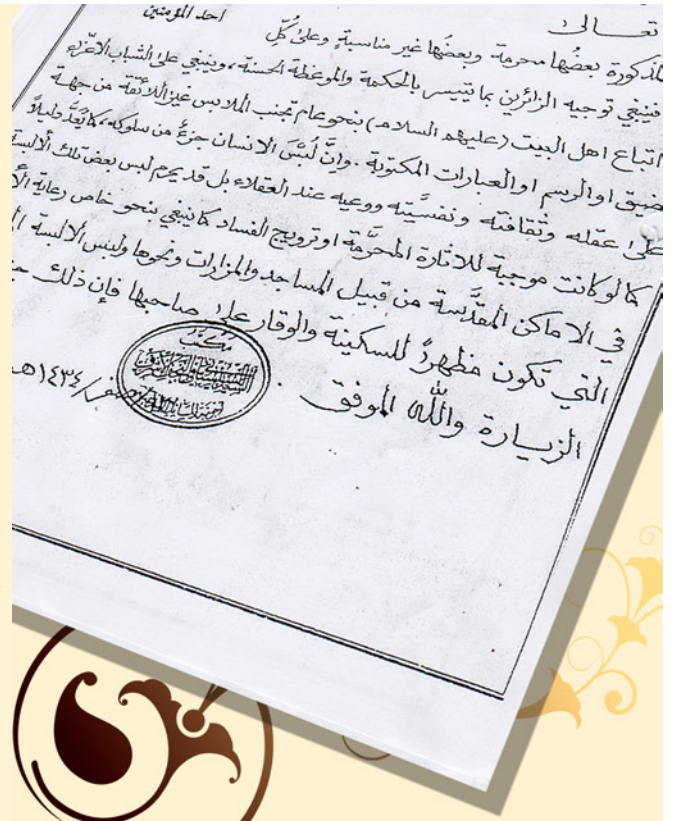 احد المؤمنين
تعالى
المذكورة بعضُها محرمة وبعضُها غير مناسبةٍ وعلى كُلِّ
فينبغي توجيه الزائرين بما يتيسر بالحكمة والموعظة الحسنة، وينبغي على الشباب الاعزاء
اتباع اهل البيت (عليهم السلام) بنحو عام تجنب الملابس غير اللائقة من جهة
ضيق او الرسم او العبارات المكتوبة. وإنَّ لُبْسَ الانسان جزءٌ من سلوكه، كما يُعَدُّ دليلاً
على عقله وثقافته ونفسيَّته ووعيه عند العقلاء بل قد يحرم لبس بعض تلك الألبسة
كما لو كانت موجبة للاثارة المحرَّمة او ترويج الفساد كما ينبغي بنحو خاص رعاية
في الاماكن المقدَّسة من قبيل المساجد والمزارات ونحوها ولبس الألبسة
التي تكون مظهراً للسكينة والوقار على صاحبها فإن ذلك
الزيارة والله الموفق.
مكتب
صفر/١٤٣٤هـ